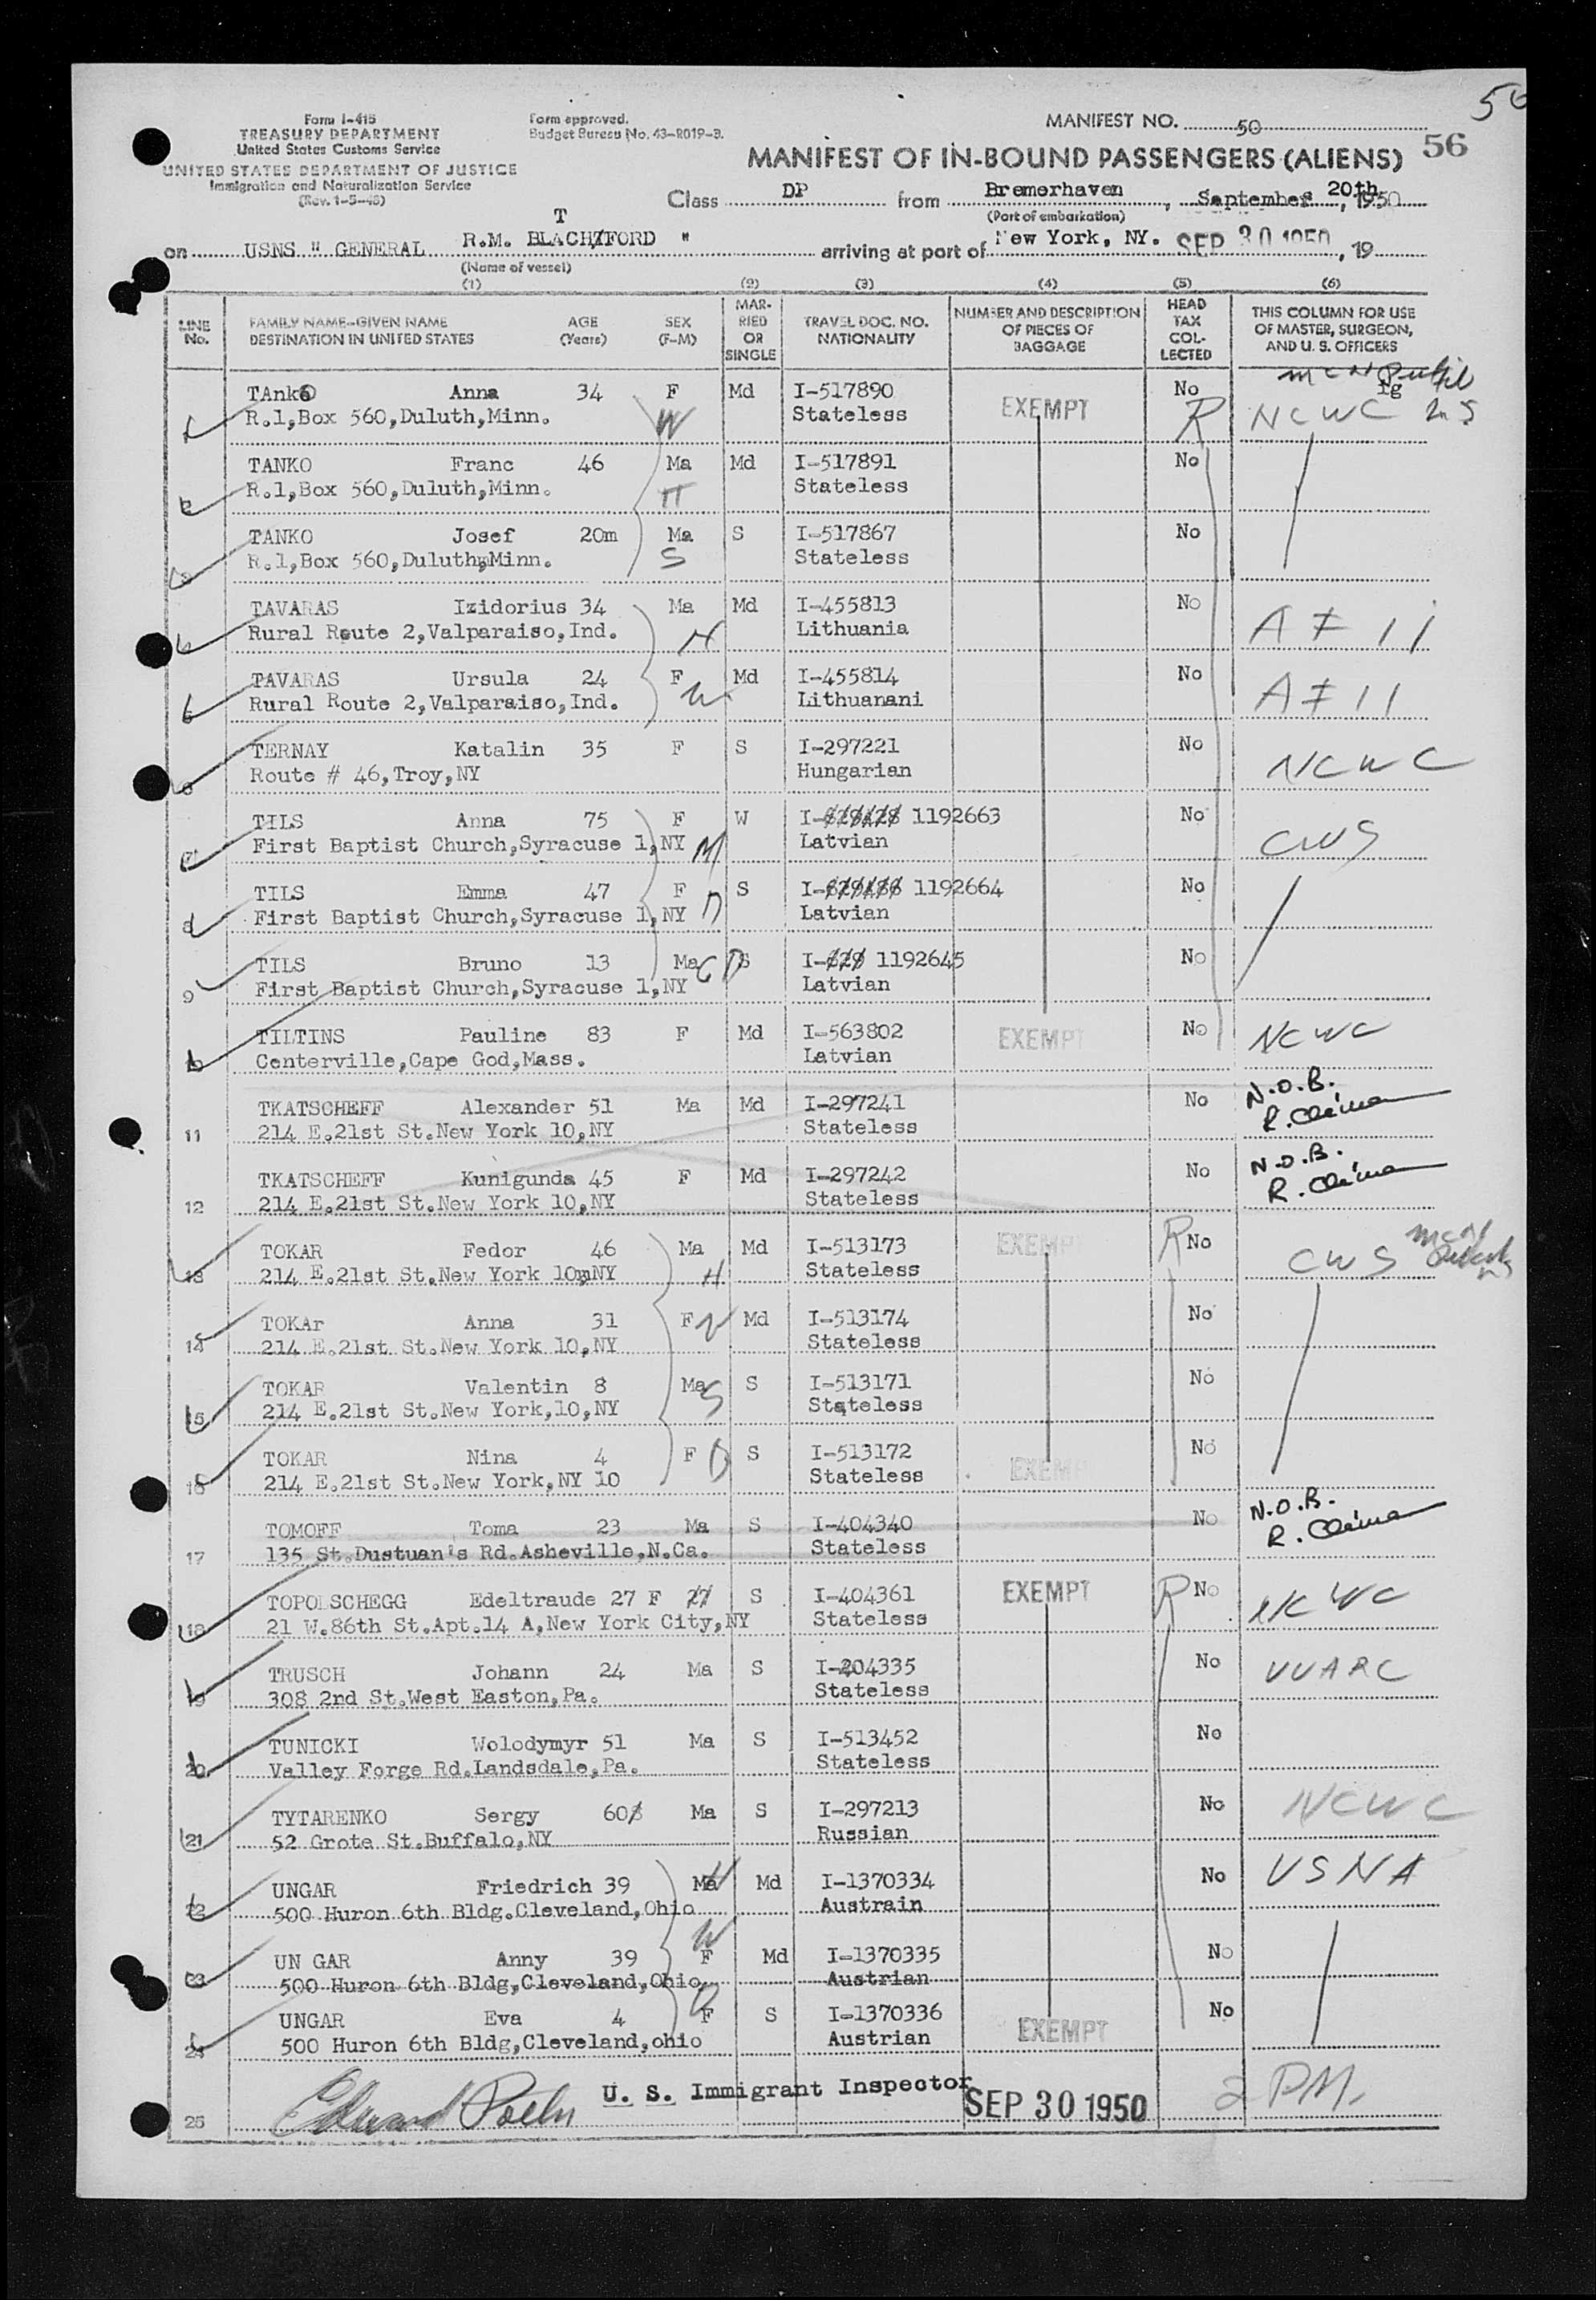 50
Form I-415
TREASURY DEPARTMENT
United States Customs Service
UNITED STATES DEPARTMENT OF JUSTICE
Immigration and Naturalization Service
(Rev. 1-5-48)
Form approved.
Budget Bureau No. 43-R019-3.
MANIFEST NO. 50
56
MANIFEST OF IN-BOUND PASSENGERS (ALIENS)
Class DP from Bremerhaven, September 20th, 1950
(Port of embarkation)
T
on USNS " GENERAL R.M. BLACHFORD " arriving at port of New York, NY. SEP 30 1950, 19
(Name of vessel)
(1) (2) (3) (4) (5) (6)
LINE No. FAMILY NAME-GIVEN NAME DESTINATION IN UNITED STATES AGE (Years) SEX (F-M) MARRIED OR SINGLE TRAVEL DOC. NO. NATIONALITY NUMBER AND DESCRIPTION OF PIECES OF BAGGAGE HEAD TAX COLLECTED THIS COLUMN FOR USE OF MASTER, SURGEON, AND U. S. OFFICERS
1 TAnkO Anna 34 F W Md I-517890 EXEMPT No R NCWC
R.1,Box 560,Duluth,Minn. Stateless
2 TANKO Franc 46 Ma H Md I-517891 No
R.1,Box 560,Duluth,Minn. Stateless
3 TANKO Josef 20m Ma S S I-517867 No
R.1,Box 560,Duluth,Minn. Stateless
4 TAVARAS Izidorius 34 Ma H Md I-455813 No
Rural Route 2,Valparaiso,Ind. Lithuania
5 TAVARAS Ursula 24 F W Md I-455814 No
Rural Route 2,Valparaiso,Ind. Lithuanani
6 TERNAY Katalin 35 F S I-297221 No NCWC
Route # 46,Troy,NY Hungarian
7 TILS Anna 75 F M W I-828128 1192663 No CWS
First Baptist Church,Syracuse 1,NY Latvian
8 TILS Emma 47 F D S I- 1192664 No
First Baptist Church,Syracuse 1,NY Latvian
9 TILS Bruno 13 Ma S I- 1192645 No
First Baptist Church,Syracuse 1,NY Latvian
10 TILTINS Pauline 83 F Md I-563802 EXEMPT No NCWC
Centerville,Cape God,Mass. Latvian
11 TKATSCHEFF Alexander 51 Ma Md I-297241 No N.O.B.
214 E.21st St.New York 10,NY Stateless
12 TKATSCHEFF Kunigunda 45 F Md I-297242 No N.O.B.
214 E.21st St.New York 10,NY Stateless
13 TOKAR Fedor 46 Ma H Md I-513173 EXEMPT R No CWS
214 E.21st St.New York 10mNY Stateless
14 TOKAr Anna 31 F W Md I-513174 No
214 E.21st St.New York 10,NY Stateless
15 TOKAR Valentin 8 Ma S S I-513171 No
214 E.21st St.New York,10,NY Stateless
16 TOKAR Nina 4 F D S I-513172 EXEMPT No
214 E.21st St.New York,NY 10 Stateless
17 TOMOFF Toma 23 Ma S I-404340 No N.O.B.
135 St.Dustuan's Rd.Asheville,N.Ca. Stateless
18 TOPOLSCHEGG Edeltraude 27 F 27 S I-404361 EXEMPT R No NCWC
21 W.86th St.Apt.14 A,New York City,NY Stateless
19 TRUSCH Johann 24 Ma S I-204335 No UUARC
308 2nd St.West Easton,Pa. Stateless
20 TUNICKI Wolodymyr 51 Ma S I-513452 No
Valley Forge Rd.Landsdale,Pa. Stateless
21 TYTARENKO Sergy 608 Ma S I-297213 No NCWC
52 Grote St.Buffalo,NY Russian
22 UNGAR Friedrich 39 Ma H Md I-1370334 No USNA
500 Huron 6th Bldg.Cleveland,Ohio Austrain
23 UN GAR Anny 39 F W Md I-1370335 No
500 Huron 6th Bldg,Cleveland,Ohio, Austrian
24 UNGAR Eva 4 F D S I-1370336 EXEMPT No
500 Huron 6th Bldg,Cleveland,ohio Austrian
25 Edward U. S. Immigrant Inspector SEP 30 1950 2 PM.